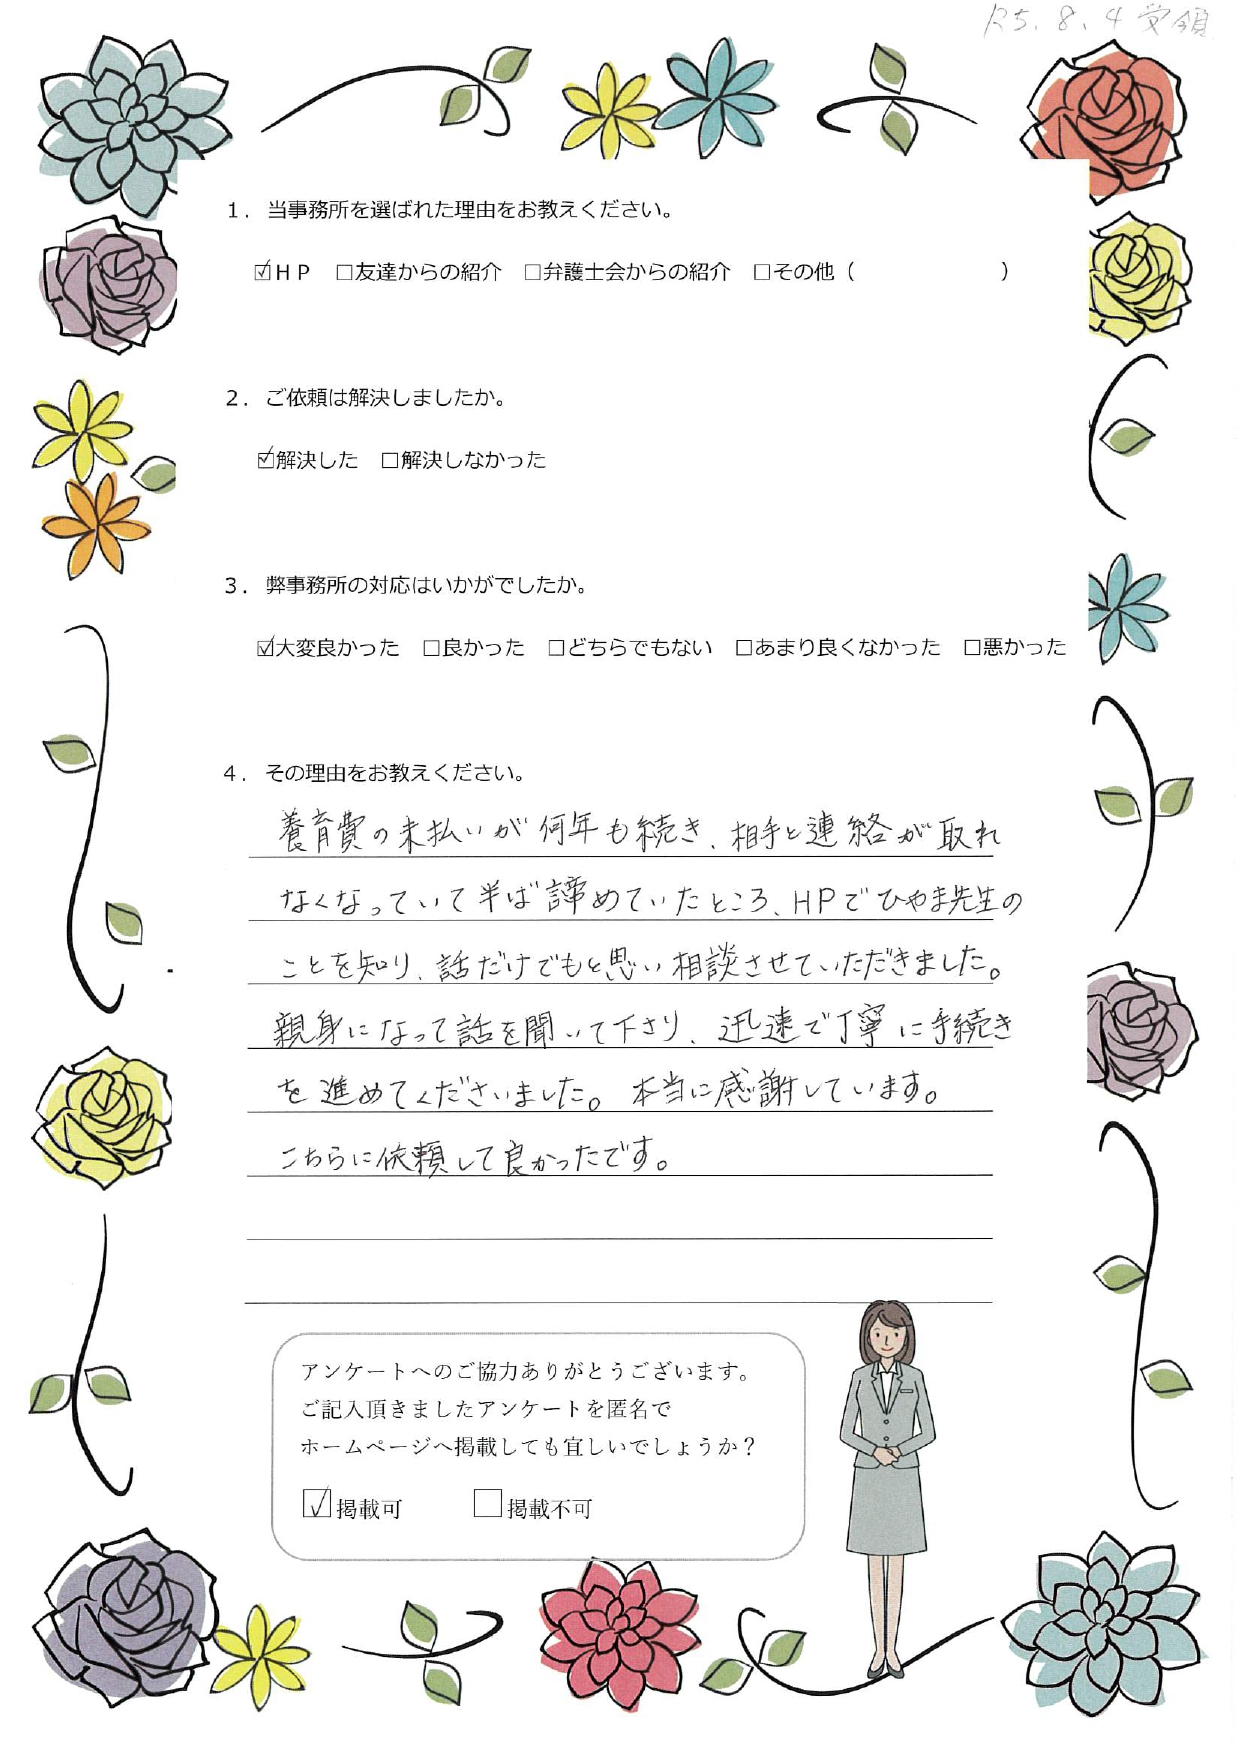 R5.8.4受領
1．当事務所を選ばれた理由をお教えください。
☑ＨＰ　□友達からの紹介　□弁護士会からの紹介　□その他（　　　　　　　）
2．ご依頼は解決しましたか。
☑解決した　□解決しなかった
3．弊事務所の対応はいかがでしたか。
☑大変良かった　□良かった　□どちらでもない　□あまり良くなかった　□悪かった
4．その理由をお教えください。
養育費の未払いが何年も続き、相手と連絡が取れ
なくなっていて半ば諦めていたところ、HPでひやま先生の
ことを知り、話だけでもと思い相談させていただきました。
親身になって話を聞いて下さり、迅速で丁寧に手続き
を進めてくださいました。本当に感謝しています。
こちらに依頼して良かったです。
アンケートへのご協力ありがとうございます。
ご記入頂きましたアンケートを匿名で
ホームページへ掲載しても宜しいでしょうか？
☑掲載可　□掲載不可